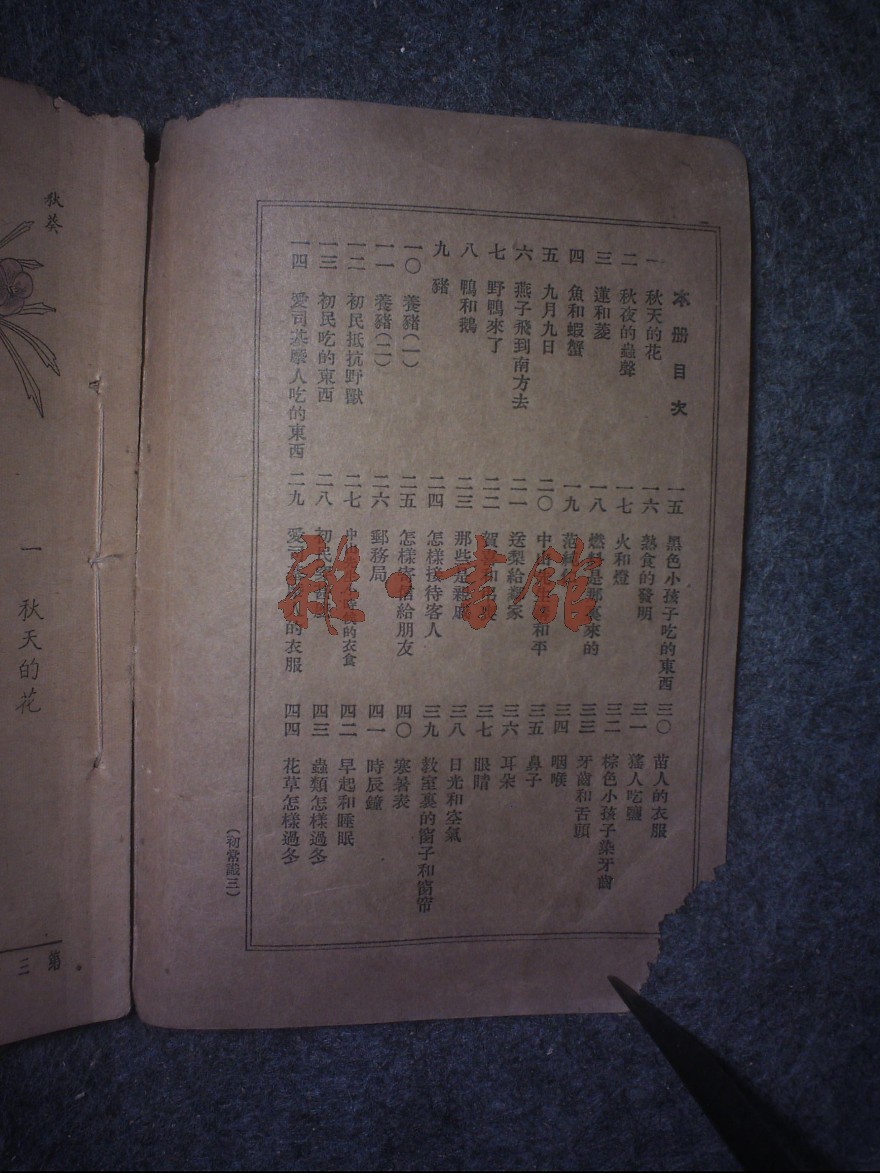 本册目次
一 秋天的花
二 秋夜的蟲聲
三 蓮和菱
四 魚和蝦蟹
五 九月九日
六 燕子飛到南方去
七 野鴨來了
八 鴨和鵝
九 豬
一〇 養豬(一)
一一 養豬(二)
一二 初民抵抗野獸
一三 初民吃的東西
一四 愛司基摩人吃的東西
一五 黑色小孩子吃的東西
一六 熟食的發明
一七 火和燈
一八 燃料是那裏來的
一九
二〇 中山 和平
二一 送梨給鄰家
二二 賀
二三 那些是親戚
二四 怎樣接待客人
二五 怎樣寄信給朋友
二六 郵務局
二七 的衣食
二八 初民
二九 愛司 的衣服
三〇 苗人的衣服
三一 猺人吃鹽
三二 棕色小孩子染牙齒
三三 牙齒和舌頭
三四 咽喉
三五 鼻子
三六 耳朵
三七 眼睛
三八 日光和空氣
三九 教室裏的窗子和窗帘
四〇 寒暑表
四一 時辰鐘
四二 早起和睡眠
四三 蟲類怎樣過冬
四四 花草怎樣過冬
(初常識三)
雜·書館
秋葵
一 秋天的花
第
三